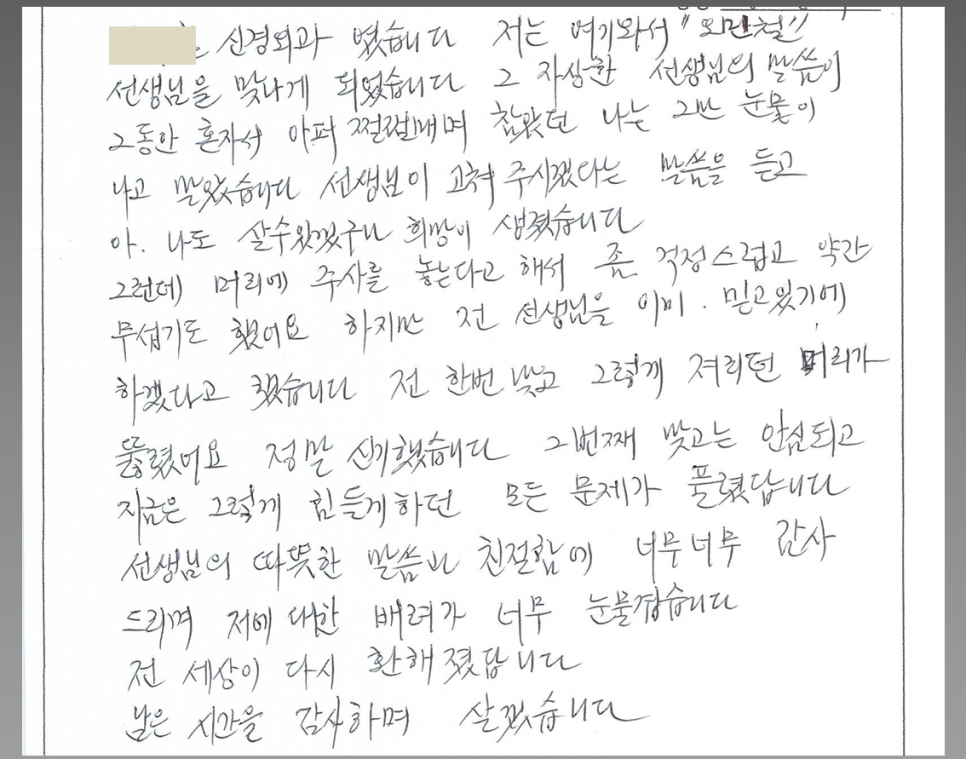 는 신경외과 였습니다 저는 여기와서 "외민철"
선생님을 맞나게 되었습니다 그 자상한 선생님의 말씀이
그동안 혼자서 아퍼 쩔쩔매며 참았던 나는 그만 눈물이
나고 말았습니다 선생님이 고쳐 주시겠다는 말씀을 듣고
아. 나도 살수있겠구나 희망이 생겼습니다
그런데 머리에 주사를 놓는다고 해서 좀 걱정스럽고 약간
무섭기도 했어요 하지만 전 선생님을 이미. 믿고있기에
하겠다고 했습니다 전 한번 맞고 그렇게 저리던 머리가
뚫렸어요 정말 신기했습니다 그번째 맞고는 안심되고
지금은 그렇게 힘들게하던 모든 문제가 풀렸답니다
선생님의 따뜻한 말씀과 친절함에 너무너무 감사
드리며 저에 대한 배려가 너무 눈물겹습니다
전 세상이 다시 환해졌답니다
남은 시간을 감사하며 살겠습니다